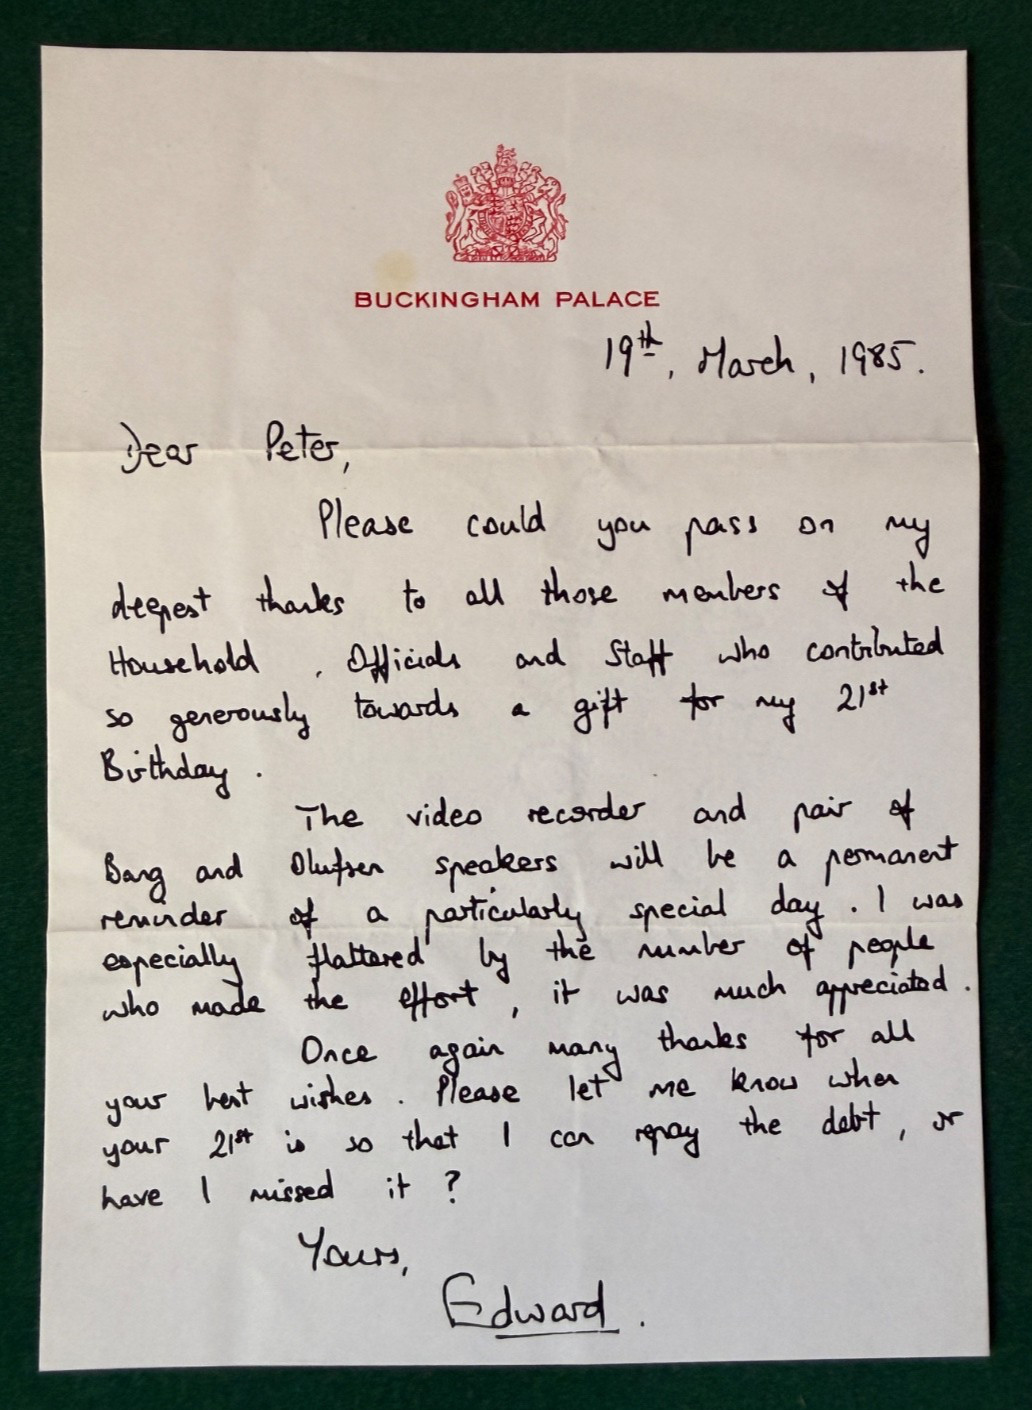 BUCKINGHAM PALACE
19th, March, 1985.
Dear Peter,
Please could you pass on my
deepest thanks to all those members of the
Household, Officials and Staff who contributed
so generously towards a gift for my 21st
Birthday.
The video recorder and pair of
Bang and Olufsen speakers will be a permanent
reminder of a particularly special day. I was
especially flattered by the number of people
who made the effort, it was much appreciated.
Once again many thanks for all
your best wishes. Please let me know when
your 21st is so that I can repay the debt, or
have I missed it?
Yours,
Edward.